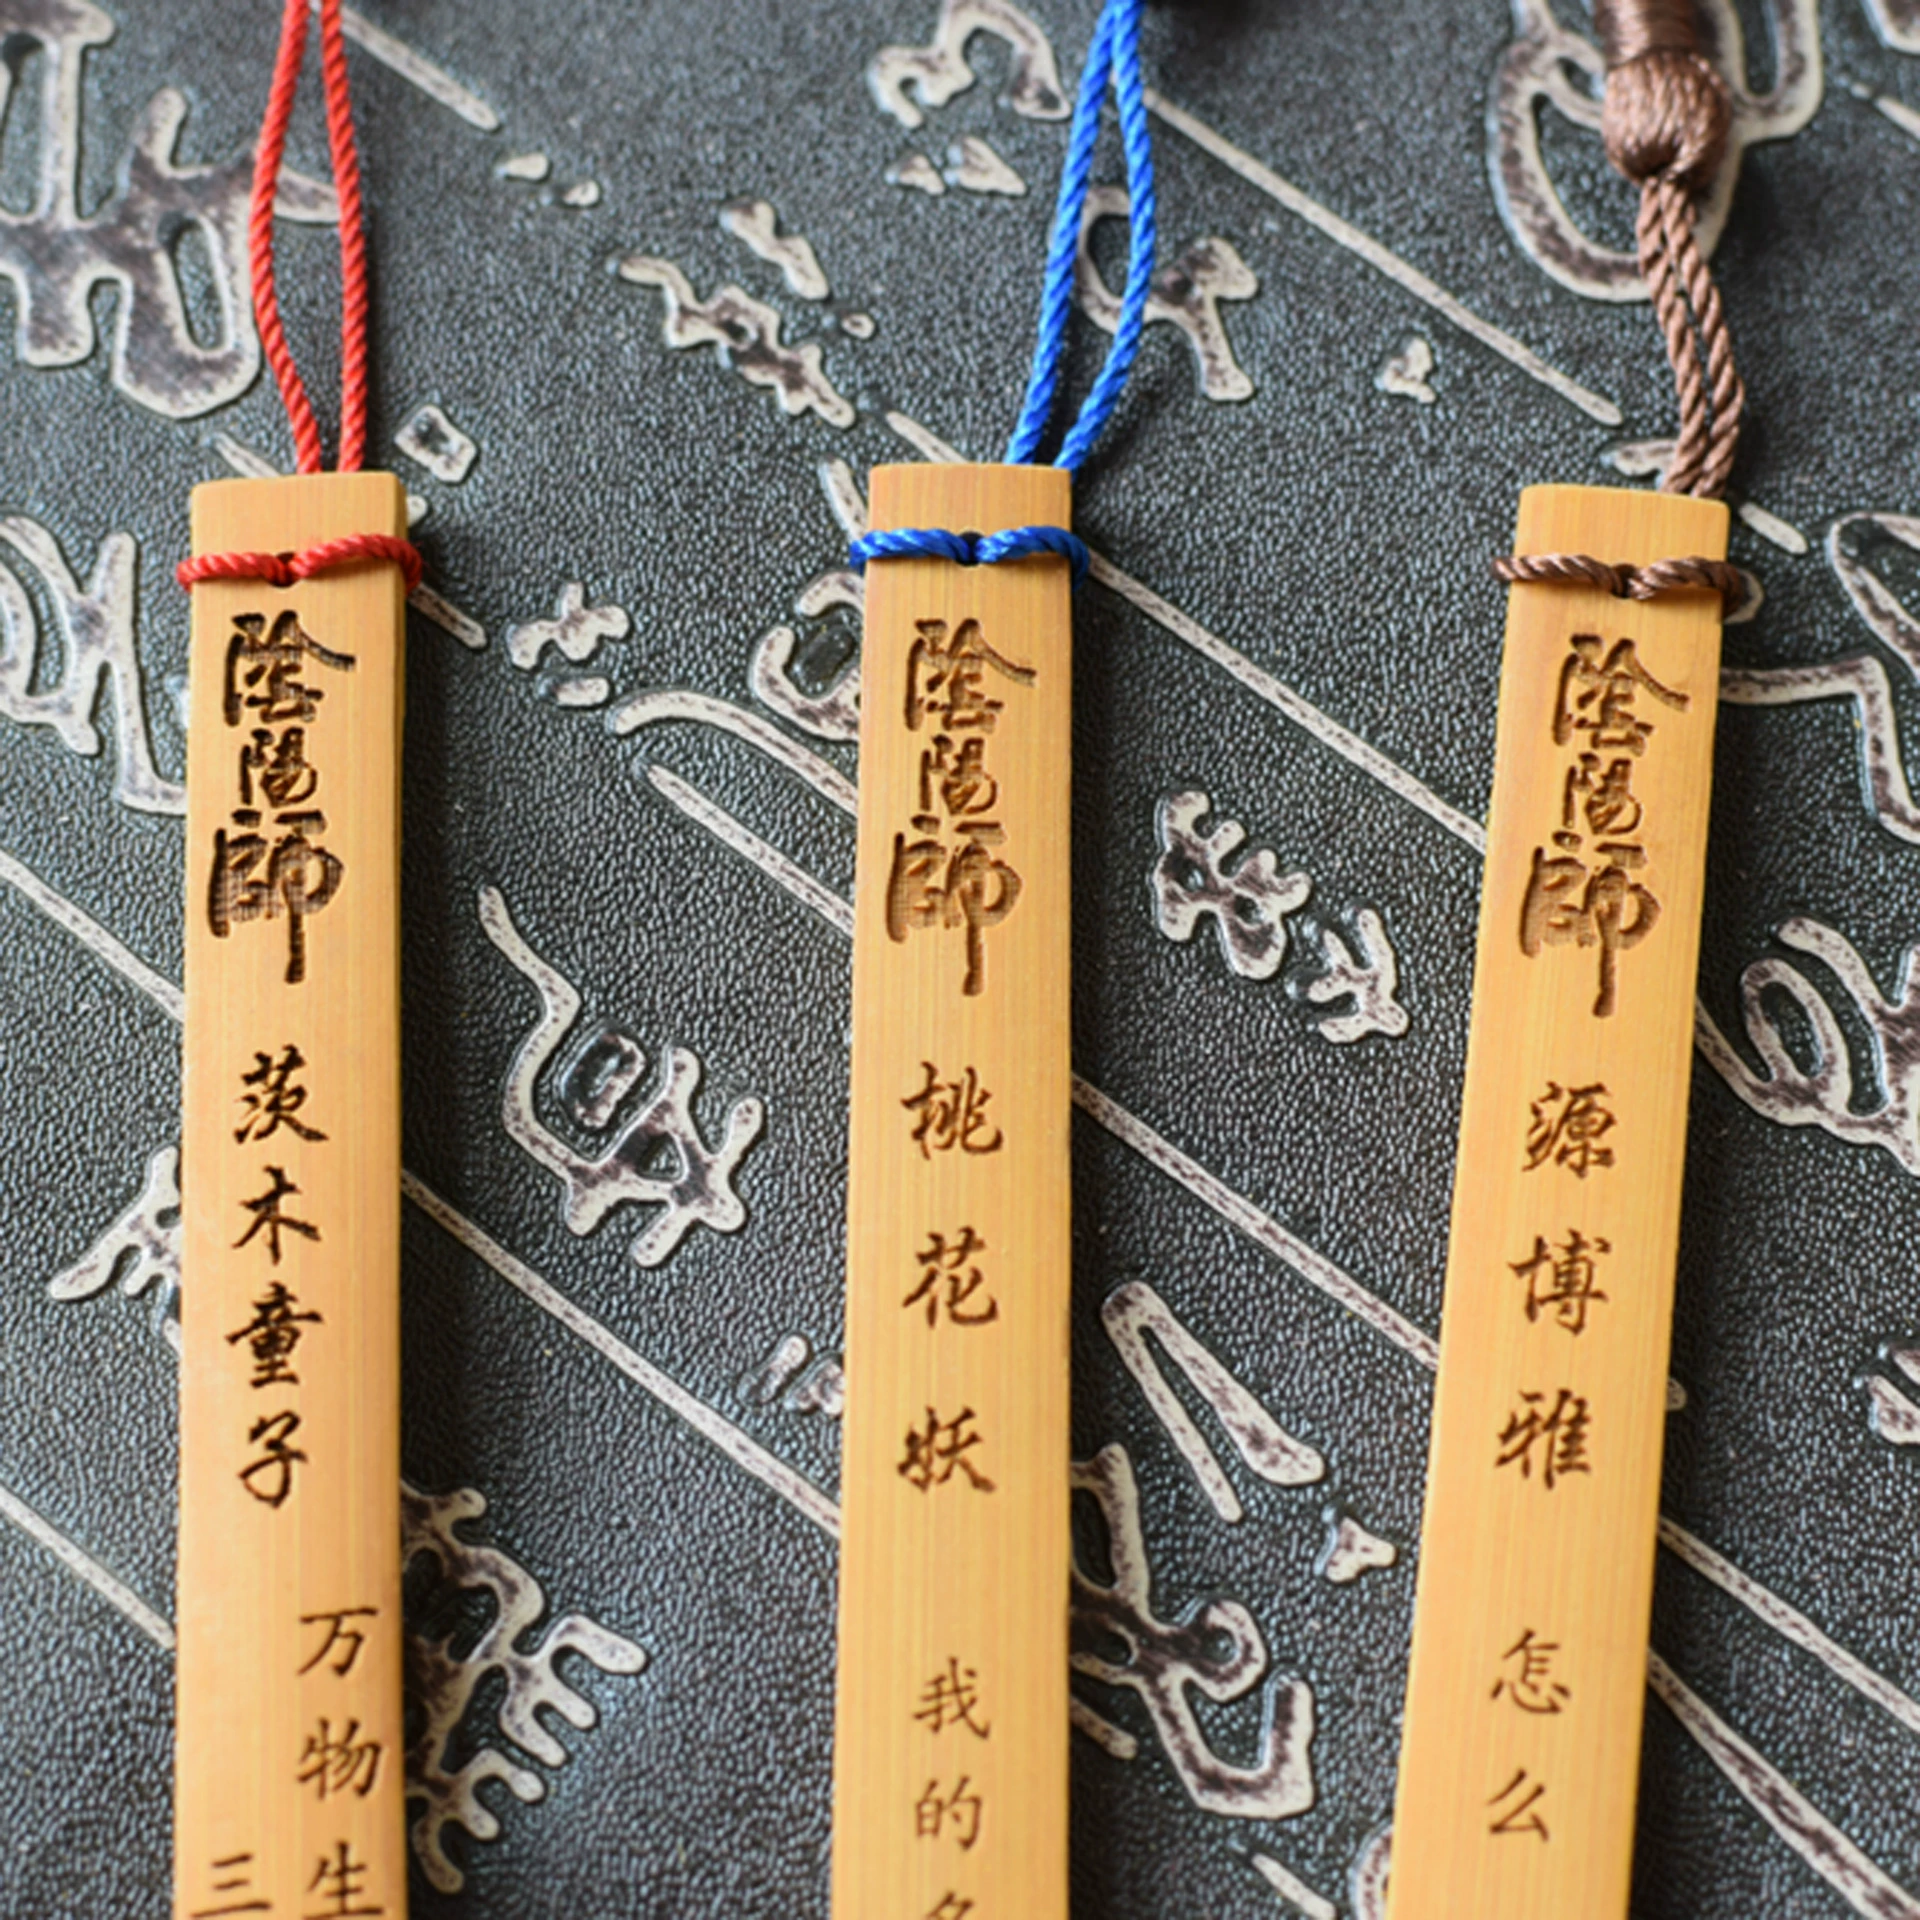 陰陽師
茨木童子
万物生
三
陰陽師
桃花妖
我的名
陰陽師
源博雅
怎么